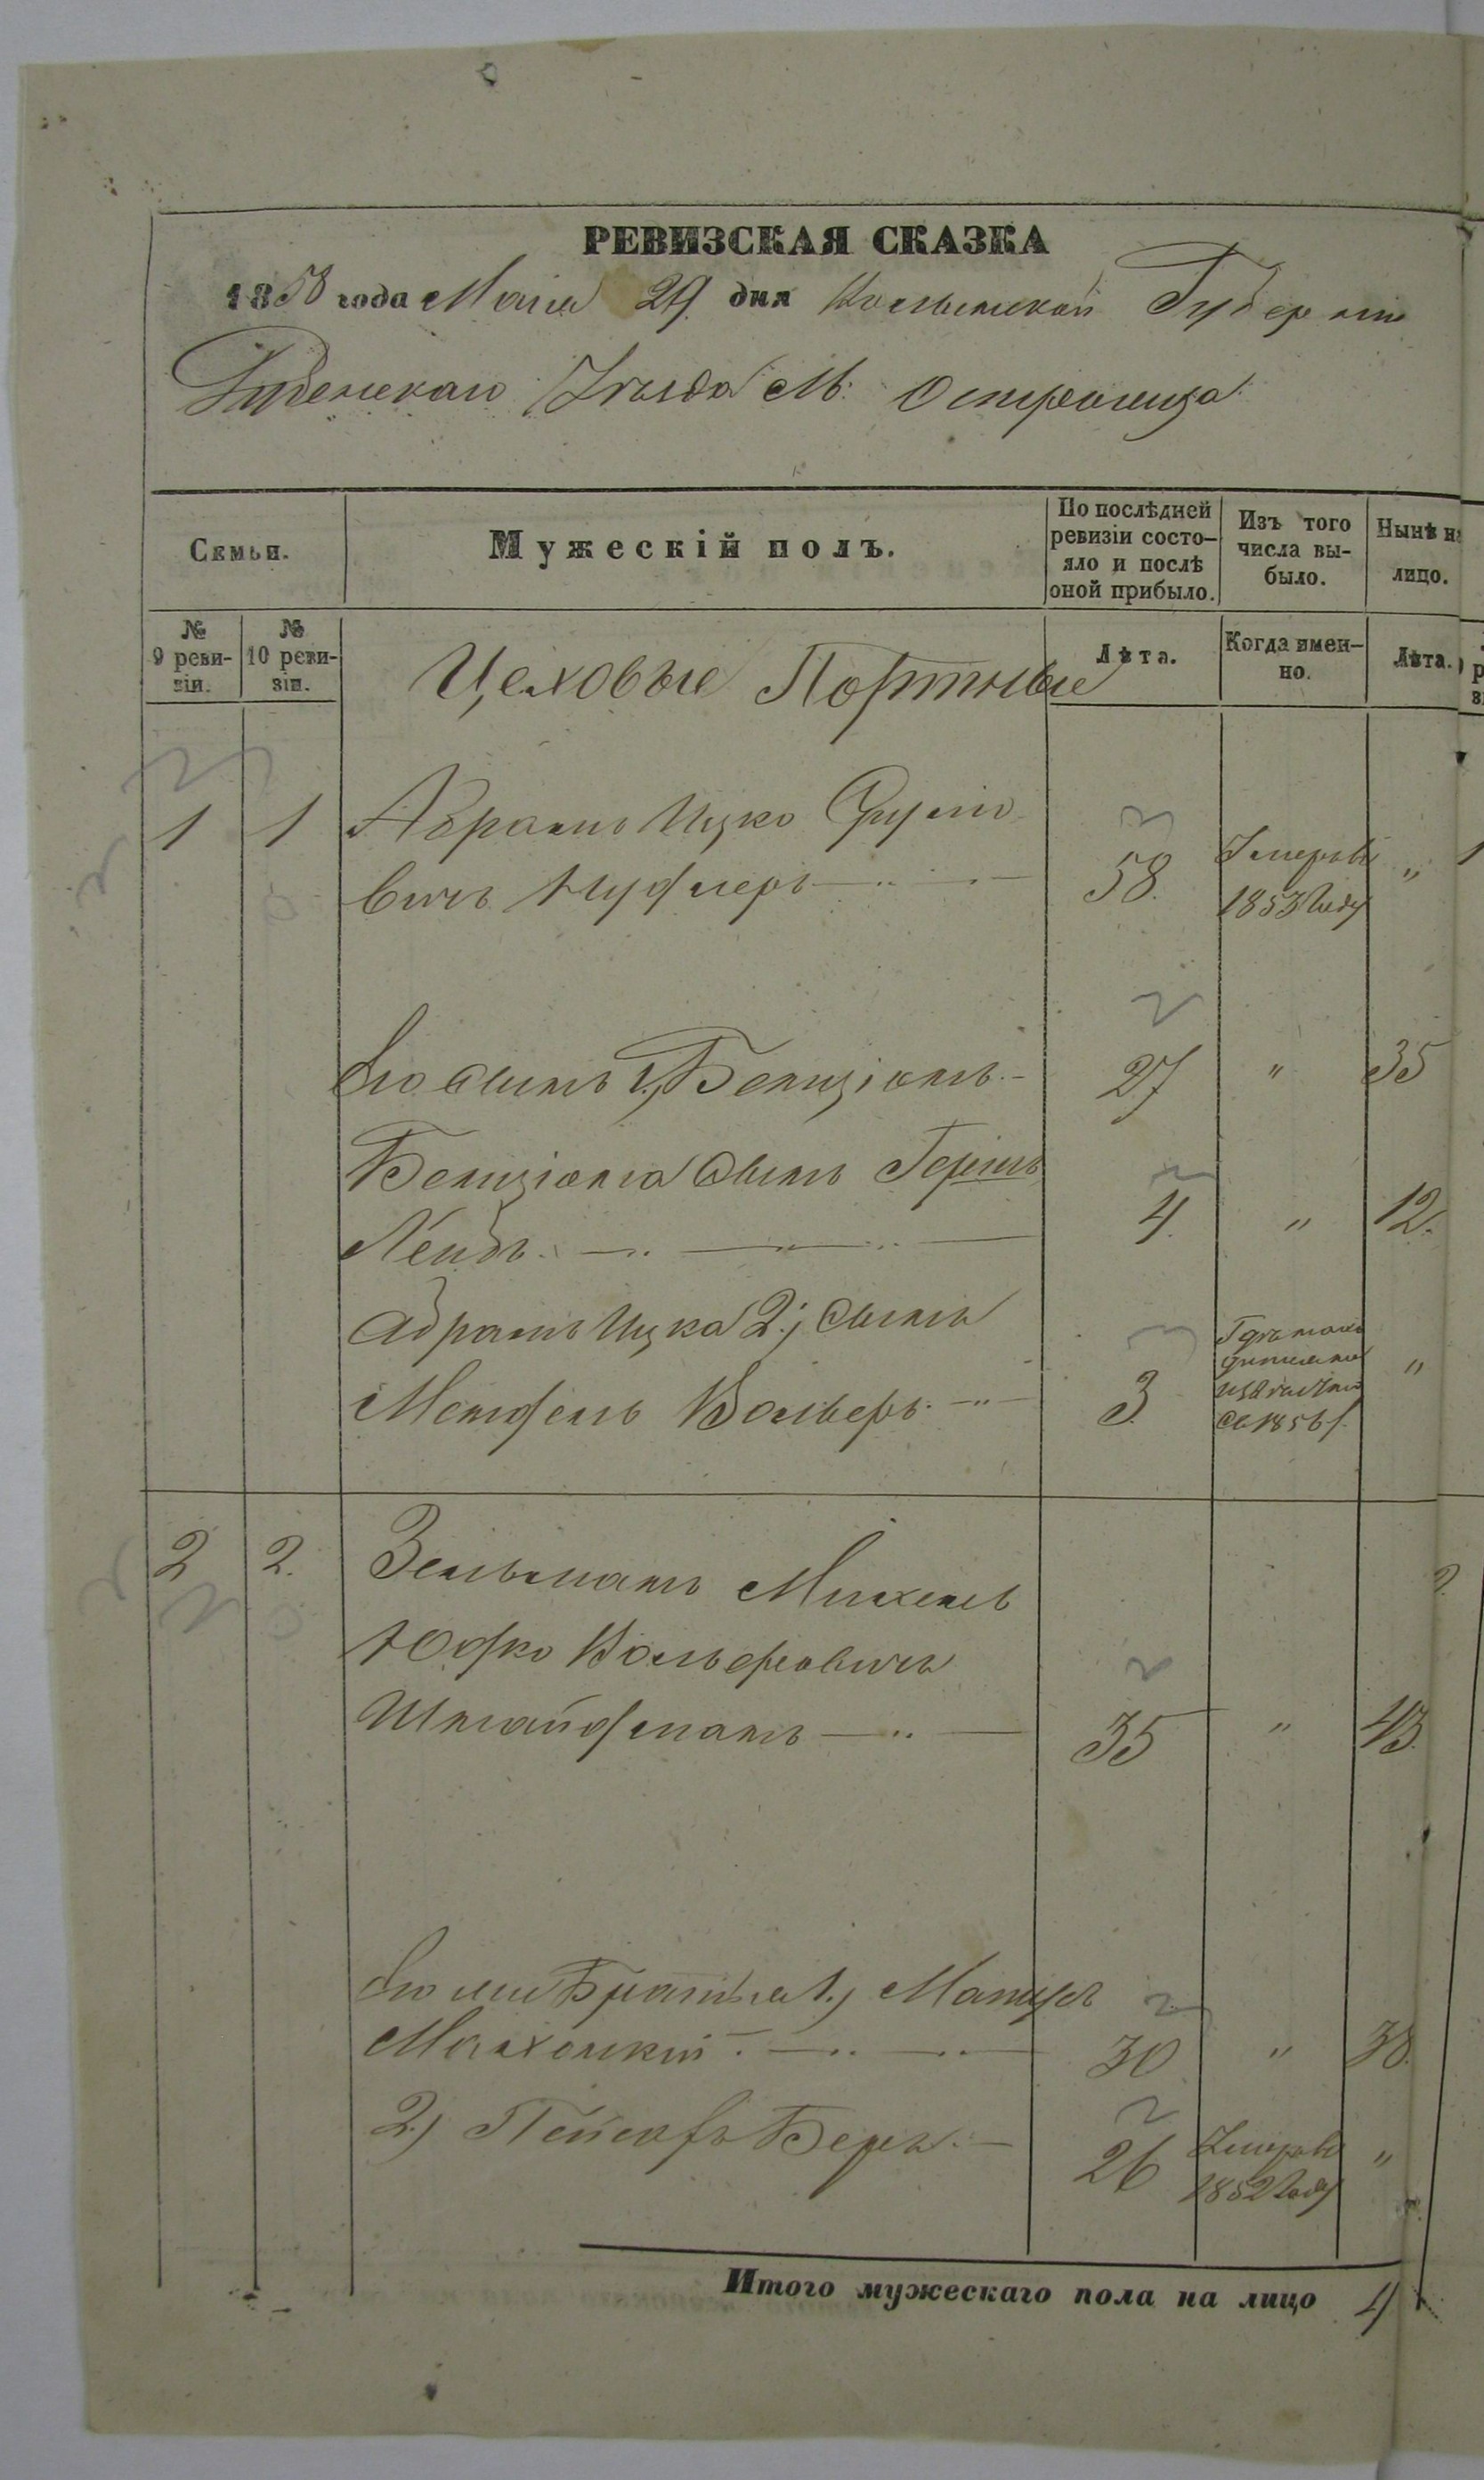 РЕВИЗСКАЯ СКАЗКА
1858 года Маія 29 дня Волынской Губерніи
Дубенскаго Уѣзда М: Остроженца
Семьи.
Мужескій полъ.
По послѣдней ревизіи состо-
яло и послѣ
оной прибыло.
Изъ того
числа вы-
было.
Нынѣ на
лицо.
№
9 реви-
зіи.
№
10 реви-
зіи.
Цеховые Портные
Лѣта.
Когда имен-
но.
Лѣта.
1 1 Абрамъ Ицко
вичъ 58. Умеръ въ 1853 году "
Его Сынъ 1, Бенціонъ.- 27 " 35
Бенціона Сынъ Гершъ
Лейбъ. 4. " 12.
Абрамъ Ицка 2; Сынъ
Мендель Вольеръ. 3. 1856 г. "
2 2. Зельманъ Михель
Юдко Вольфовичъ
Штайфманъ 35 " 43.
Его Братья 1,
30 " 38.
2, Пейсахъ Беръ. 26 Умеръ въ 1852 году "
Итого мужескаго пола на лицо 4